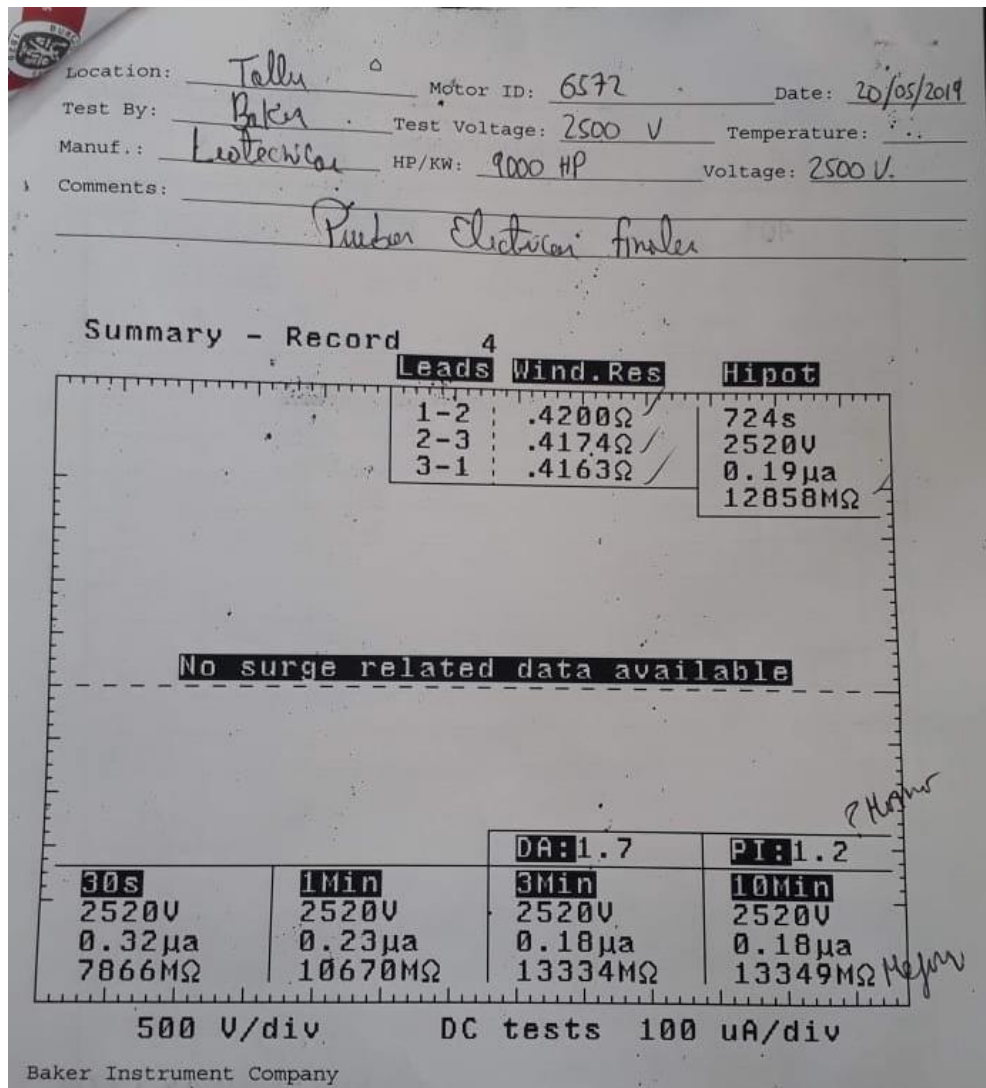 Location: Motor ID: 6572 Date: 20/05/2019
Test By: Baker Test Voltage: 2500 V Temperature:
Manuf.: HP/KW: 9000 HP Voltage: 2500 V.
Comments:
Summary - Record 4
Leads Wind.Res Hipot
1-2 .4200Ω 724s
2-3 .4174Ω 2520V
3-1 .4163Ω 0.19µa
12858MΩ
No surge related data available
DA:1.7 PI:1.2
30s 1Min 3Min 10Min
2520V 2520V 2520V 2520V
0.32µa 0.23µa 0.18µa 0.18µa
7866MΩ 10670MΩ 13334MΩ 13349MΩ
500 V/div DC tests 100 uA/div
Baker Instrument Company